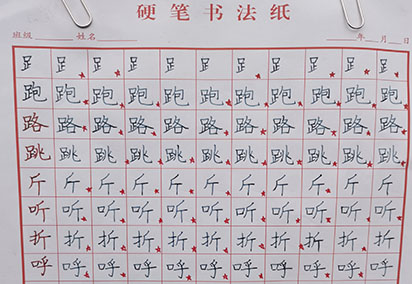 硬笔书法纸
班级 姓名 年 月 日
⻊ ⻊ ⻊ ⻊ ⻊ ⻊ ⻊ ⻊ ⻊ ⻊ ⻊
跑 跑 跑 跑 跑 跑 跑 跑 跑 跑 跑
路 路 路 路 路 路 路 路 路 路 路
跳 跳 跳 跳 跳 跳 跳 跳 跳 跳 跳
斤 斤 斤 斤 斤 斤 斤 斤 斤 斤 斤
听 听 听 听 听 听 听 听 听 听 听
折 折 折 折 折 折 折 折 折 折 折
呼 呼 呼 呼 呼 呼 呼 呼 呼 呼 呼